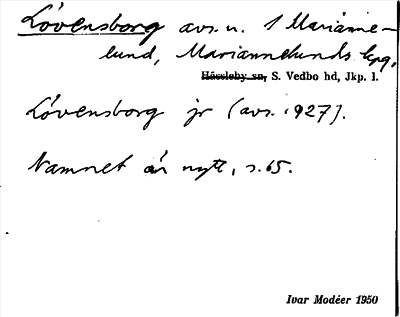 Lövensborg avs. u. 1 Marianne-
lund, Mariannelunds kpg,
Hässleby sn, S. Vedbo hd, Jkp. l.
Lövensborg jr (avs. 1927).
Namnet är nytt, s. 65.
Ivar Modéer 1950